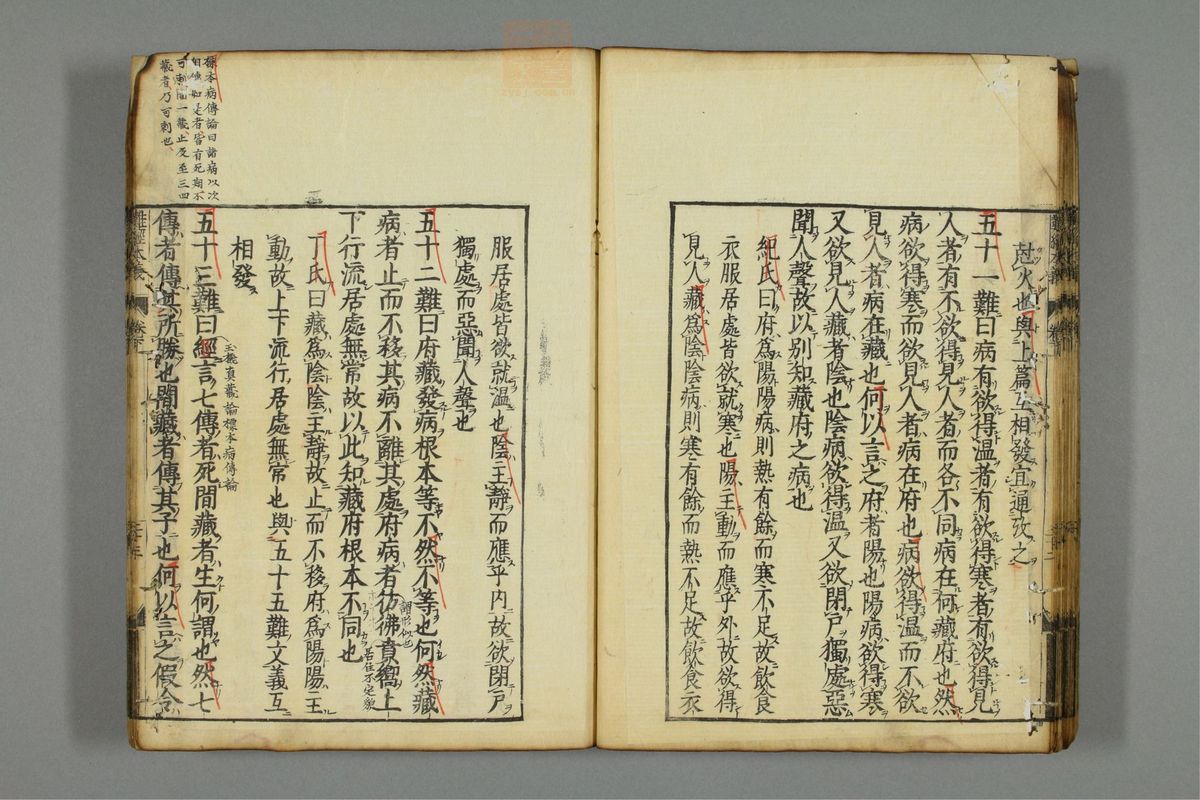 尅火也與上篇互相發宜通攷之
五十一難曰病有欲得溫者有欲得寒者有欲得見
人者有不欲得見人者而各不同病在何藏府也然
病欲得寒而欲見人者病在府也病欲得溫而不欲
見人者病在藏也何以言之府者陽也陽病欲得寒
又欲見人藏者陰也陰病欲得溫又欲閉戶獨處惡
聞人聲故以別知藏府之病也
紀氏曰府爲陽陽病則熱有餘而寒不足故飲食
衣服居處皆欲就寒也陽主動而應乎外故欲得
見人藏爲陰陰病則寒有餘而熱不足故飲食衣
服居處皆欲就溫也陰主靜而應乎內故欲閉戶
獨處而惡聞人聲也
五十二難曰府藏發病根本等不然不等也何然藏
病者止而不移其病不離其處府病者彷彿賁嚮上
下行流居處無常故以此知藏府根本不同也
丁氏曰藏爲陰陰主靜故止而不移府爲陽陽主
動故上下流行居處無常也與五十五難文義互
相發
五十三難曰經言七傳者死間藏者生何謂也然七
傳者傳其所勝也間藏者傳其子也何以言之假令
標本病傳論曰諸病以次
相傳如是者皆有死期不
可刺間一藏止及至三四
藏者乃可刺也
玉機真藏論標本病傳論
難經本義
卷下